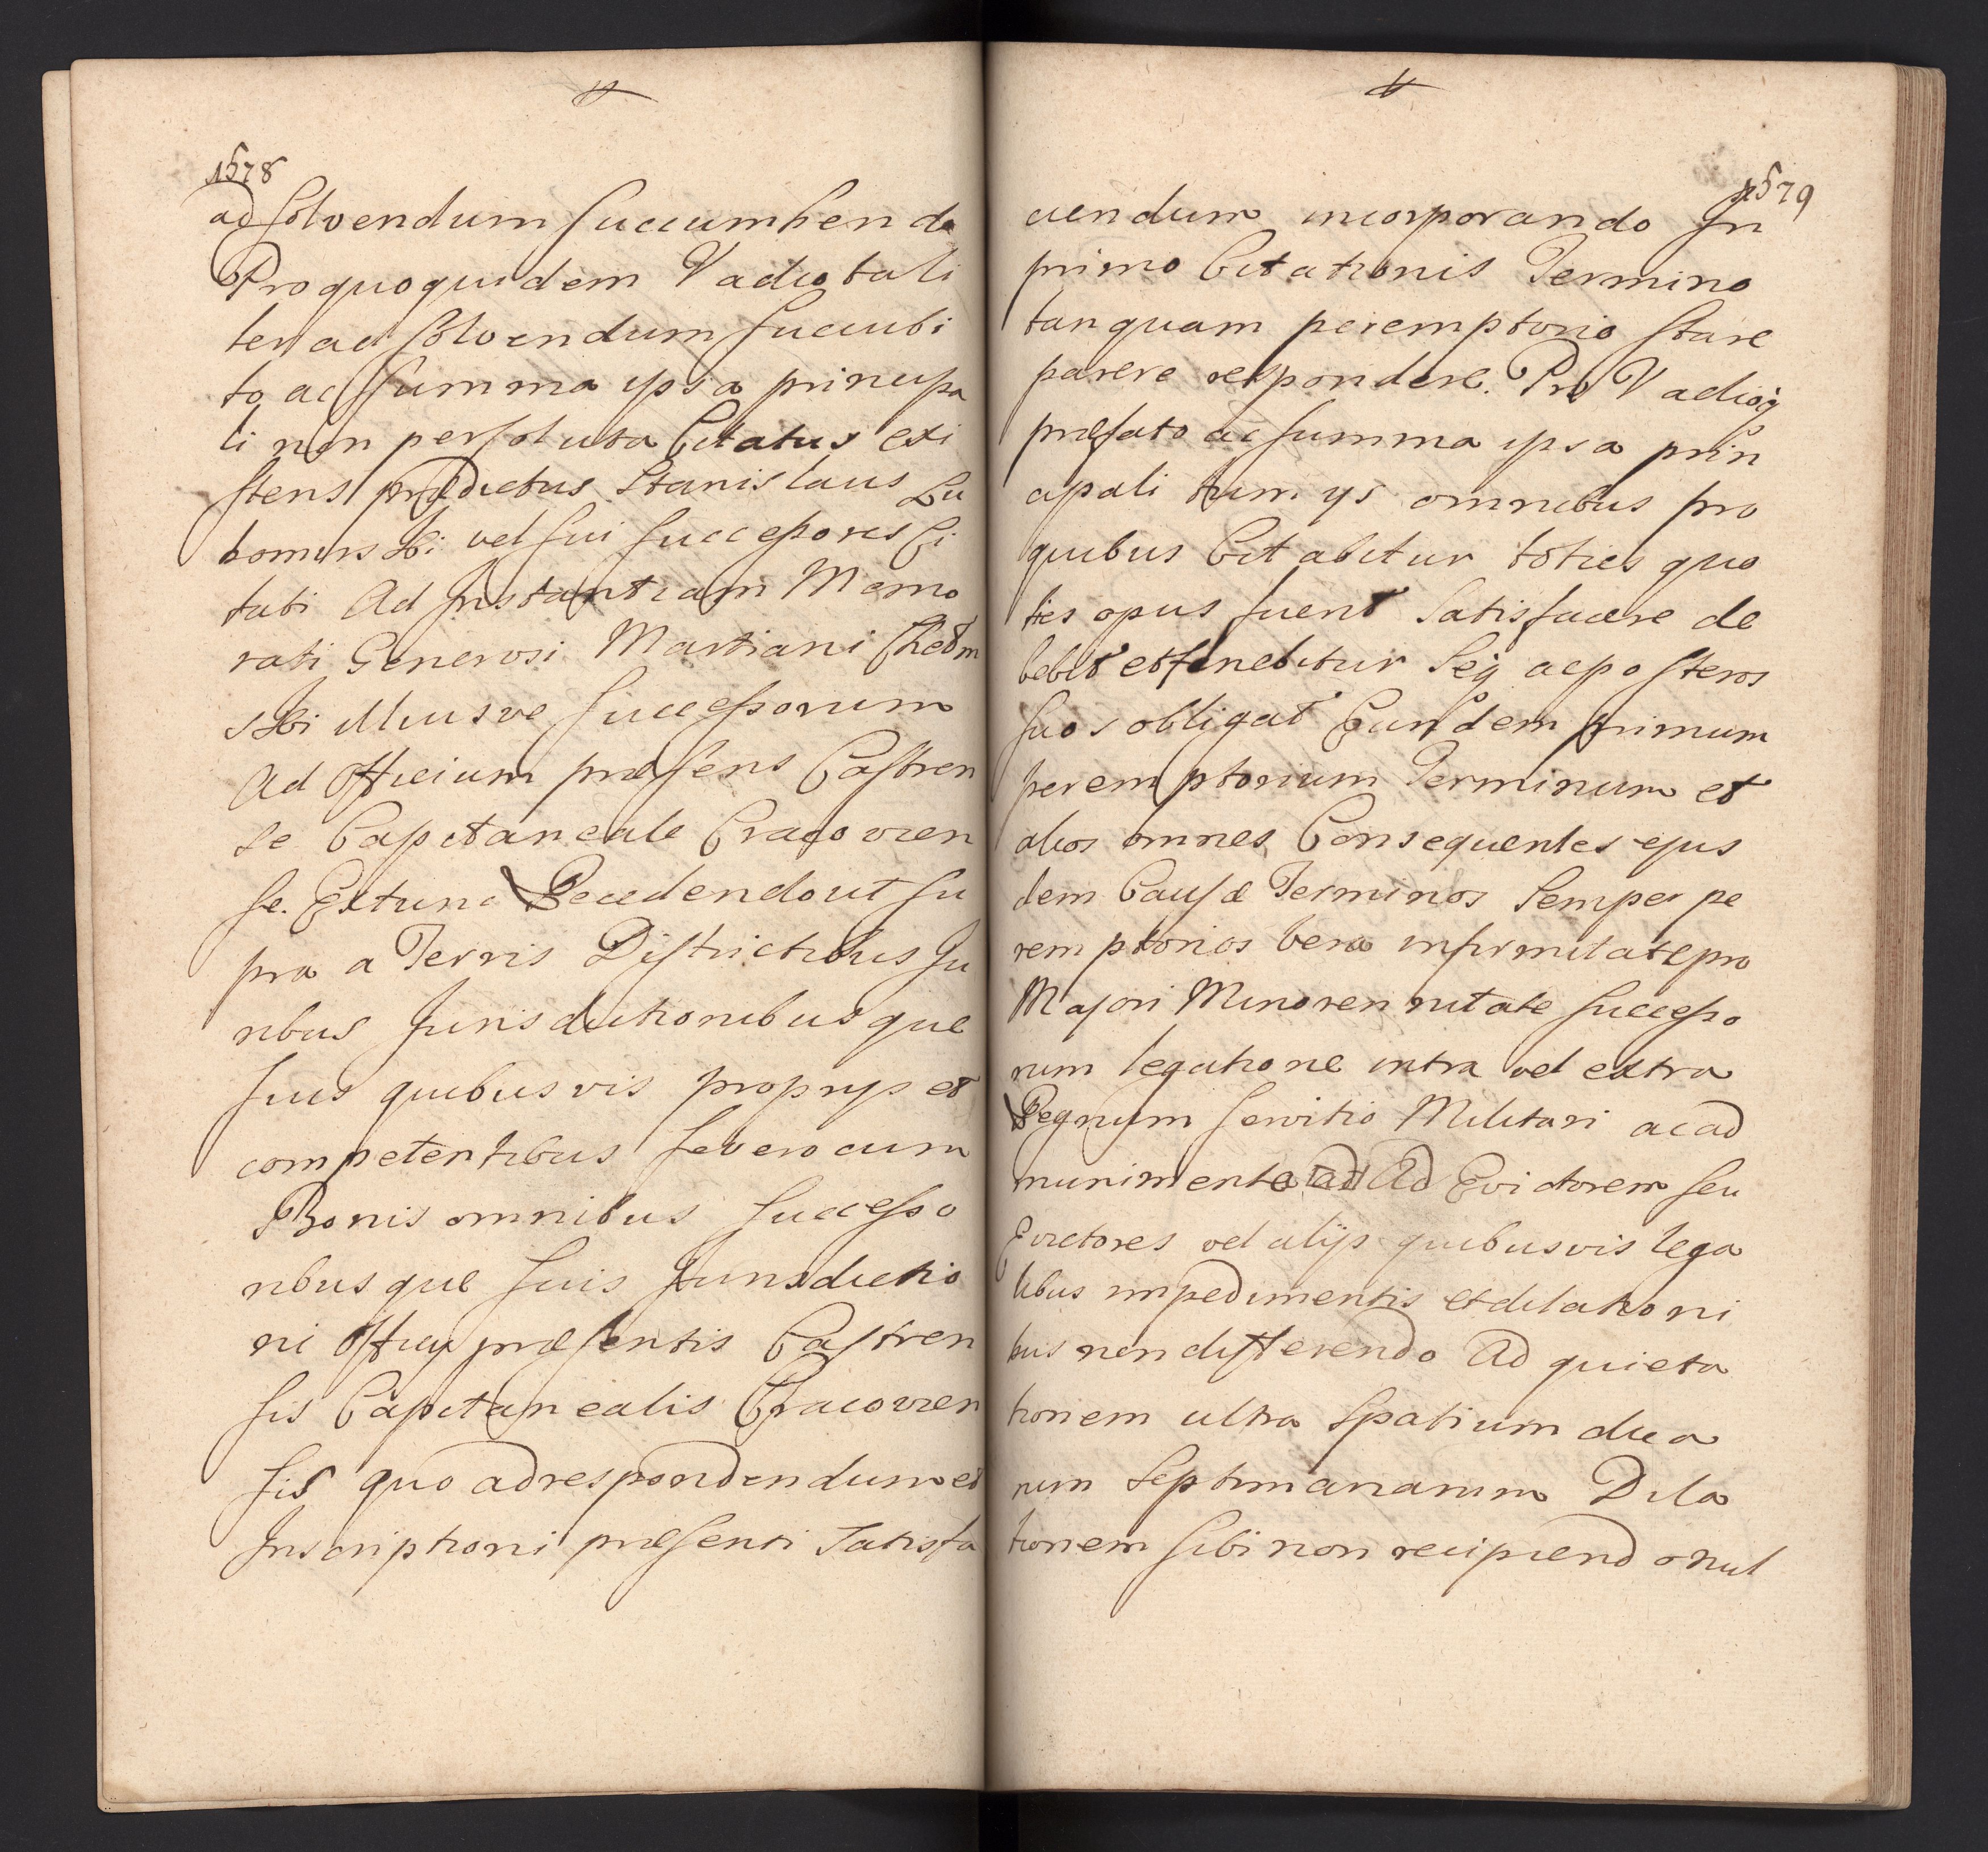 1578
ad solvendum succumbendo
Pro quo quidem Vadio tali
ter ad solvendum succubi
to ac summa ipsa principa
li non persoluta Citatus exi
stens prædictus Stanislaus Lu
bomirski vel sui successores Ci
tati Ad Instantiam Memo
rati Generosi Martiani Chełm
ski Illiusve successorum
Ad Officium præsens Castren
se Capitaneale Cracovien
se. Extunc Recedendo ut su
pra a Terris Districtibus Ju
ribus Jurisdictionibusque
suis quibusvis proprijs et
competentibus se vero cum
Bonis omnibus Successo
ribusque suis Jurisdictio
ni Officij præsentis Castren
sis Capitanealis Cracovien
sis quo ad respondendum et
Inscriptioni præsenti Satisfa
1579
ciendum incorporando In
primo Citationis Termino
tanquam peremptorio stare
parere respondere. Pro Vadioq
præfato ac summa ipsa prin
cipali tum ijs omnibus pro
quibus Citabitur toties quo
ties opus fuerit Satisfacere de
bebit et tenebitur Seq ac posteros
suos obligat Eundem primum
peremptorium Terminum et
alios omnes Consequentes ejus
dem Causæ Terminos Semper pe
remptorios vera infirmitate pro
Majori Minorennitate successo
rum legatione intra vel extra
Regnum servitio Militari ac ad
munimenta ad Ad Evictorem seu
Evictores vel alijs quibusvis lega
libus impedimentis et dilationi
bus non differendo Ad quieta
tionem ultra Spatium dua
rum Septimanarum Dila
tionem sibi non recipiendo nul